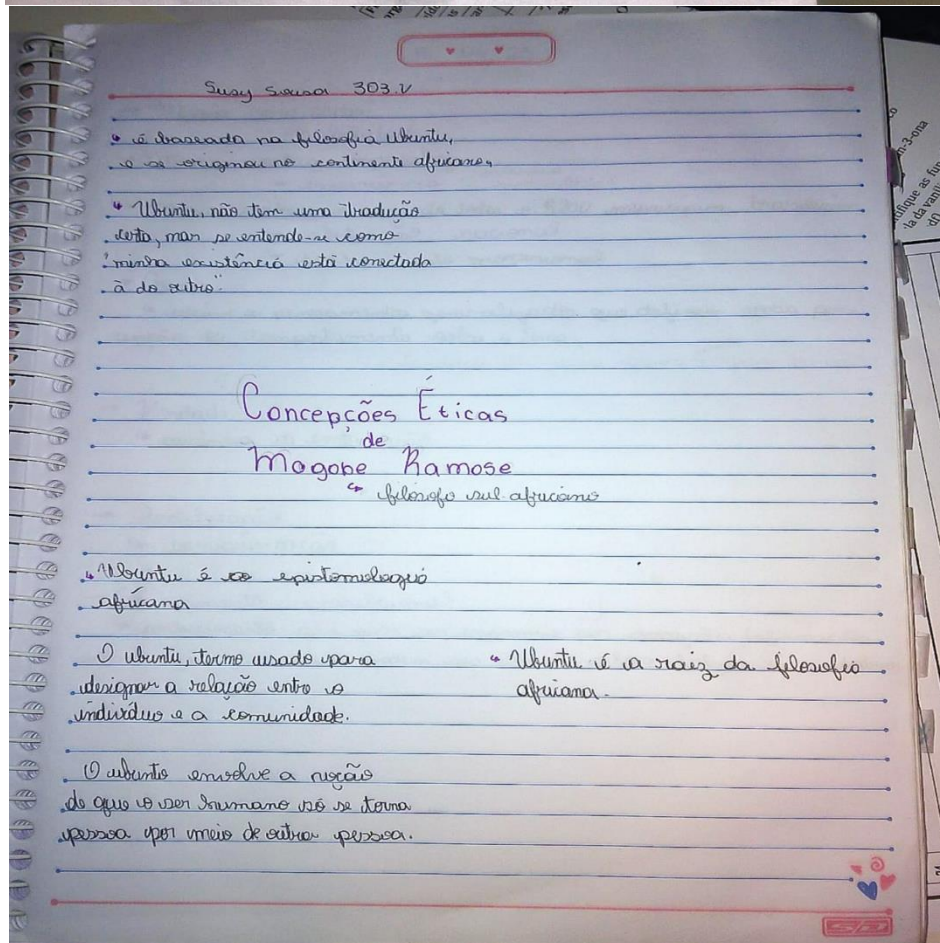 Susy Sousa 303.V
é baseada na filosofia Ubuntu,
e se originou no continente africano,
Ubuntu, não tem uma tradução
certa, mas se entende-se como
"minha existência está conectada
à do outro".
Concepções Éticas
de
Magobe Ramose
filósofo sul africano
Ubuntu é a epistomologia
africana
O ubuntu, termo usado para
designar a relação entre o
indivíduo e a comunidade.
Ubuntu é a raiz da filosofia
africana.
O ubunto envolve a noção
de que o ser humano só se torna
pessoa por meio de outra pessoa.